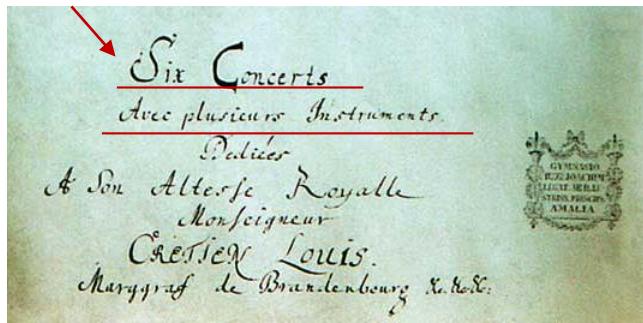 Six Concerts
Avec plusieurs Instruments.
Dediées
A Son Altesse Royalle
Monseigneur
CRETIEN LOUIS.
Marggraf de Brandenbourg &c.&c.&c:
GYMNASIO
JOACHIM
AMALIA